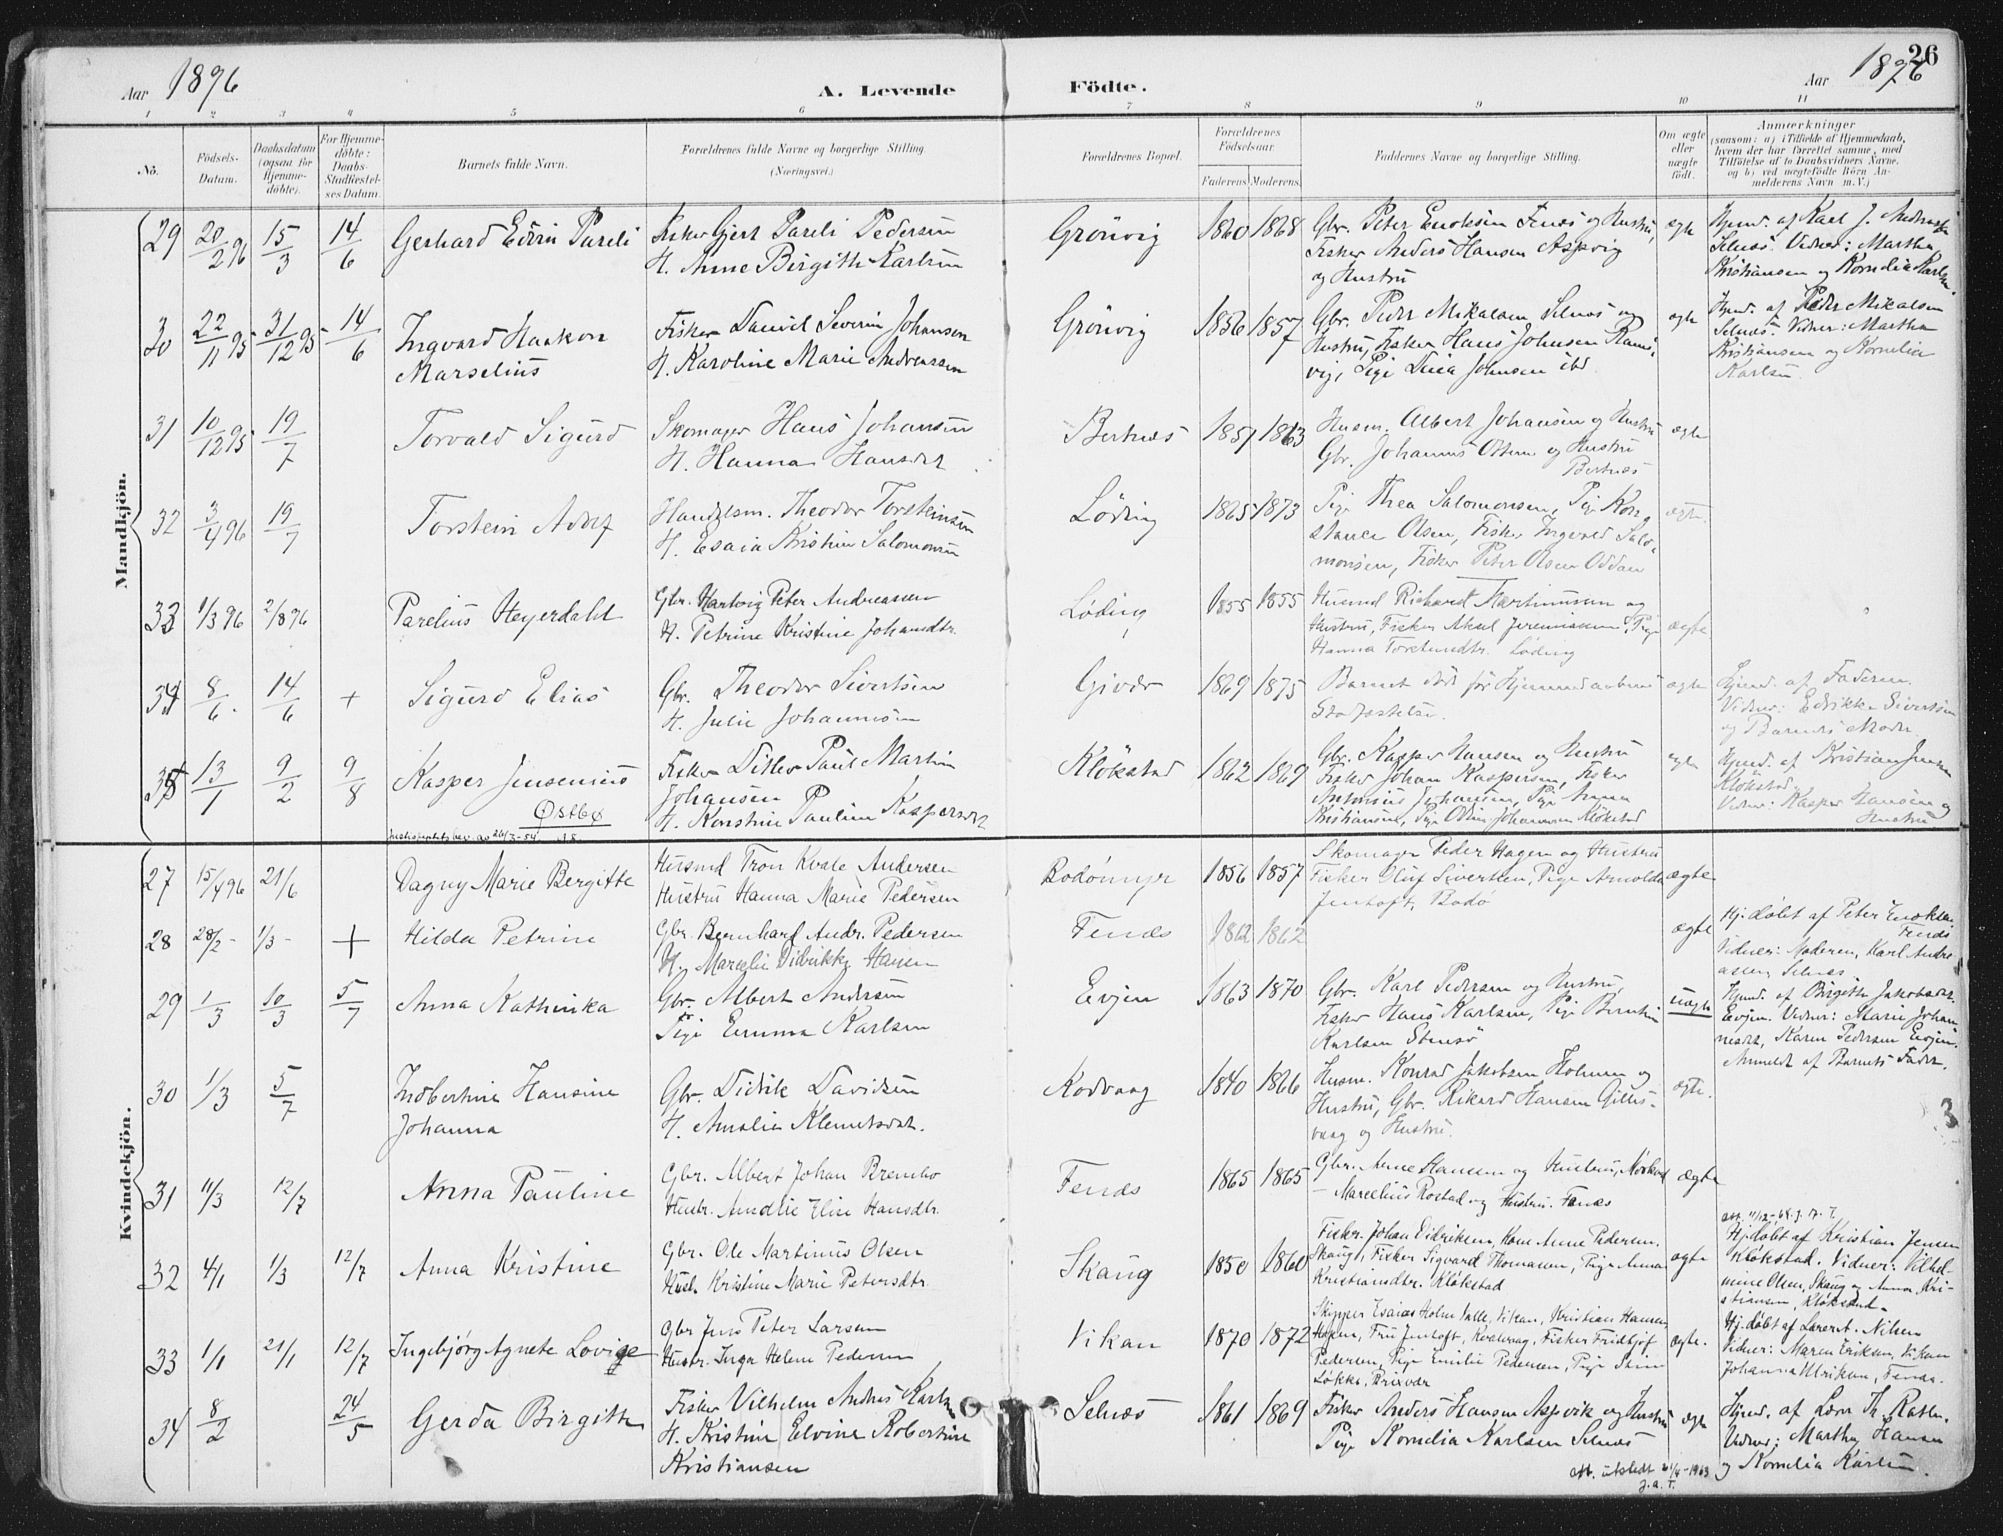 Aar 1896
A. Levende
Födte.
Aar 1896
26
1 2 3 4 5 6 7 8 9 10 11
No.
Födsels-
Datum.
Daabsdatum
(ogsaa for
Hjemme-
döbte).
For Hjemme-
döbte:
Daabs-
Stadfæstel-
ses Datum.
Barnets fulde Navn.
Forældrenes fulde Navne og borgerlige Stilling.
(Næringsvei.)
Forældrenes Bopæl.
Forældrenes
Födselsaar.
Faderens Moderens
Faddernes Navne og borgerlige Stilling.
Om ægte
eller
uægte
födt.
Anmærkninger
(saasom: a) i Tilfælde af Hjemmedaab,
hvem der har forrettet samme, med
Tilföielse af to Daabsvidners Navne.
og b) ved uægtefödte Börn An-
melderens Navn m. V.)
Mandkjön.
29 20/2 96 15/3 14/6 Gerhard Edvin Pareli
Fisker Gjert Pareli Pedersen
H. Anne Birgitte Karlsen
Grönvig 1860 1868
Gbr. Peter Enoksen Fenes og Hustru,
Fisker Anders Hansen Aspvig
og Hustru
ægte
Hjemd. af Karl J. Andreassen
Selnes. Vidner: Martha
Kristiansen og Kornelia Karlsen.
30 22/11 95 31/12 95 14/6 Ingvard Haakon
Marselius
Fisker Daniel Severin Johansen
H. Karoline Marie Andreassen
Grönvig 1856 1857
Gbr. Peder Mikalsen Selnes og
Hustru, Fisker Hans Johnsen
Pige Johnsen ibd.
ægte
Hjemd. af Peder Mikalsen
Selnes. Vidner: Martha
Kristiansen og Kornelia
Karlsen.
31 10/12 95 19/7 Torvald Sigurd
Skomager Hans Johansen
H. Hanna Hansdat.
Bertnes 1851 1863
Husm. Albert Johansen og Hustru
Gbr. Johannes Olsen og Hustru
Bertnes
ægte
32 3/4 96 19/7 Torstein Adolf
Handelsm. Theodor Torsteinsen
H. Esaia Kristine Salomonsen
Löding 1865 1873
Pige Thea Salomonsen, Pige Kon-
stance Olsen, Fisker Ingvald Salo-
monsen, Fisker Peter Olsen Oddan
ægte.
33 1/3 96 2/8 96 Parelius Heyerdahl
Gbr. Hartvig Peter Andreassen
H. Petrine Kristine Johansdtr.
Løding 1855 1855
Husmd Richard Martinusen og
Hustru, Fisker Aksel Jeremiassen, Pige
Hanna Løding
ægte
34 8/6. 14/6 + Sigurd Elias
Gbr. Theodor Sivertsen
H. Julie Johannesen
Givær 1869 1875
Barnet död för Hjemmedaabens
Stadfæstelse.
ægte
Hjemd. af Faderen.
Vidner: Edrikke Sivertsen
og Barnets Moder
35 13/1 9/2 9/8 Kasper Jensenius
Østbø
26/3-54.
Fisker Ditlev Paul Martin
Johansen
H. Konstine Pauline Kaspersdat
Klökstad 1862 1869
Gbr. Kasper Hansen og Hustru
Fisker Johan Kaspersen, Fisker
Antonius Johansen, Pige Anna
Kristiansen, Pige Johannesen Klökstad
ægte
Hjemd. af Kristian Jensen
Klökstad.
Vidner: Kasper Hansen og
Hustru
Kvindekjön.
27 15/4 96 21/6 Dagny Marie Bergitte
Husmd Tron Kvale Andersen
Hustru Hanna Marie Pedersen
Bodömyr 1856 1857
Skomager Peder Hagen og Hustru
Fisker Oluf Sivertsen, Pige Arnolda
Jentoft, Bodö
ægte
28 28/2 - 1/3 - + Hilda Petrine
Gbr. Bernhard Andr. Pedersen
H. Marselie Didrikke Hansen
Fenes 1862 1862
ægte
Hj. döbt af Peter Enoksen
Fenes
Vidner: Moderen, Karl Andre-
assen, Selnes
29 1/3 10/3 5/7 Anna Kathinka
Gbr. Albert Andersen
Pige Emma Karlsen
Evjen 1863 1870
Gbr. Karl Pedersen og Hustru,
Fisker Hans Karlsen, Pige Berntine
Karlsen
uægte
Hjemd. af Birgitte Jakobsdat.
Evjen. Vidner: Marie Johan-
nesdat, Karen Pedersen Evjen.
Anmeldt af Barnets Fader.
30 1/3 5/7 Indbertine Hansine
Johanna
Gbr. Didrik Davidsen
H. Amalia Klemetsdat.
Kodvaag 1840 1866
Husm. Konrad Jakobsen Holmen og
Hustru, Gbr. Rikard Hansen Gillis-
vaag og Hustru.
ægte.
3
31 11/3 12/7 Anna Pauline
Gbr. Albert Johan Brembo
Hustr. Amalie Elise Hansdtr.
Fenes 1865 1865
Gbr. Arne Hansen og Hustru,
- Marcelius Rostad og Hustru. Fenes
ægte
32 4/1 1/3 12/7 Anna Kristine
Gbr. Ole Martinus Olsen
Hust. Kristine Marie Petersdtr.
Skaug 1850 1860
Fisker Johan Didriksen, Kone Anne Pedersen.
Skaug, Fisker Sigvard Thomassen, Pige Anna
Kristiansdtr. Klökstad
ægte
att. 11/12-68. J. A. T.
Hj. döbt af Kristian Jensen
Klökstad. Vidner: Vilhel-
mine Olsen, Skaug og Anna Kri-
stiansen, Klökstad.
33 1/1 21/1 12/7 Ingebjørg Agnete Lovise
Gbr Jens Peter Larsen
Hustr. Inga Helene Pedersen
Vikan 1870 1872
Skipper Esaias Holm Valle, Vikan, Kristian Hansen
Hopen, Fru Jentoft, Kvalvaag, Fisker Fridtjof
Pedersen, Pige Emilie Pedersen, Pige
Løkke, Brixvær
ægte.
Hj. döbt af Lærer A. Nilsen
Vidner: Maren Eriksen, Vikan
Johanna Ulriksen, Fenes.
34 8/2 24/5 Gerda Birgitte
Fisker Vilhelm Andreas Karlsen
H. Kristine Elvine Robertine
Kristiansen
Selnes 1861 1869
Fisker Anders Hansen Aspvik og Hustru
Pige Kornelia Karlsen Selnes
ægte
Hjemd. af Lærer
Vidner: Martha Hansen
og Kornelia Karlsen.
Att. utstedt 21/4-1963
J.A.T.